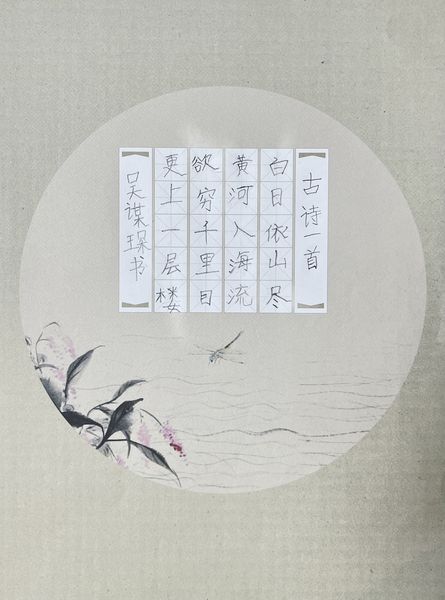 古诗一首
白日依山尽
黄河入海流
欲穷千里目
更上一层楼
吴谋琛书